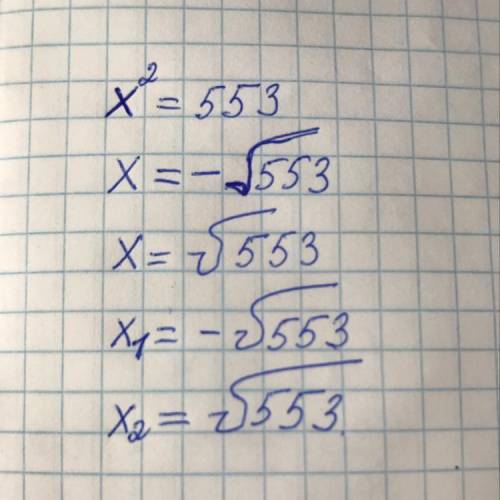 x² = 553
x = -√553
x = √553
x₁ = -√553
x₂ = √553.